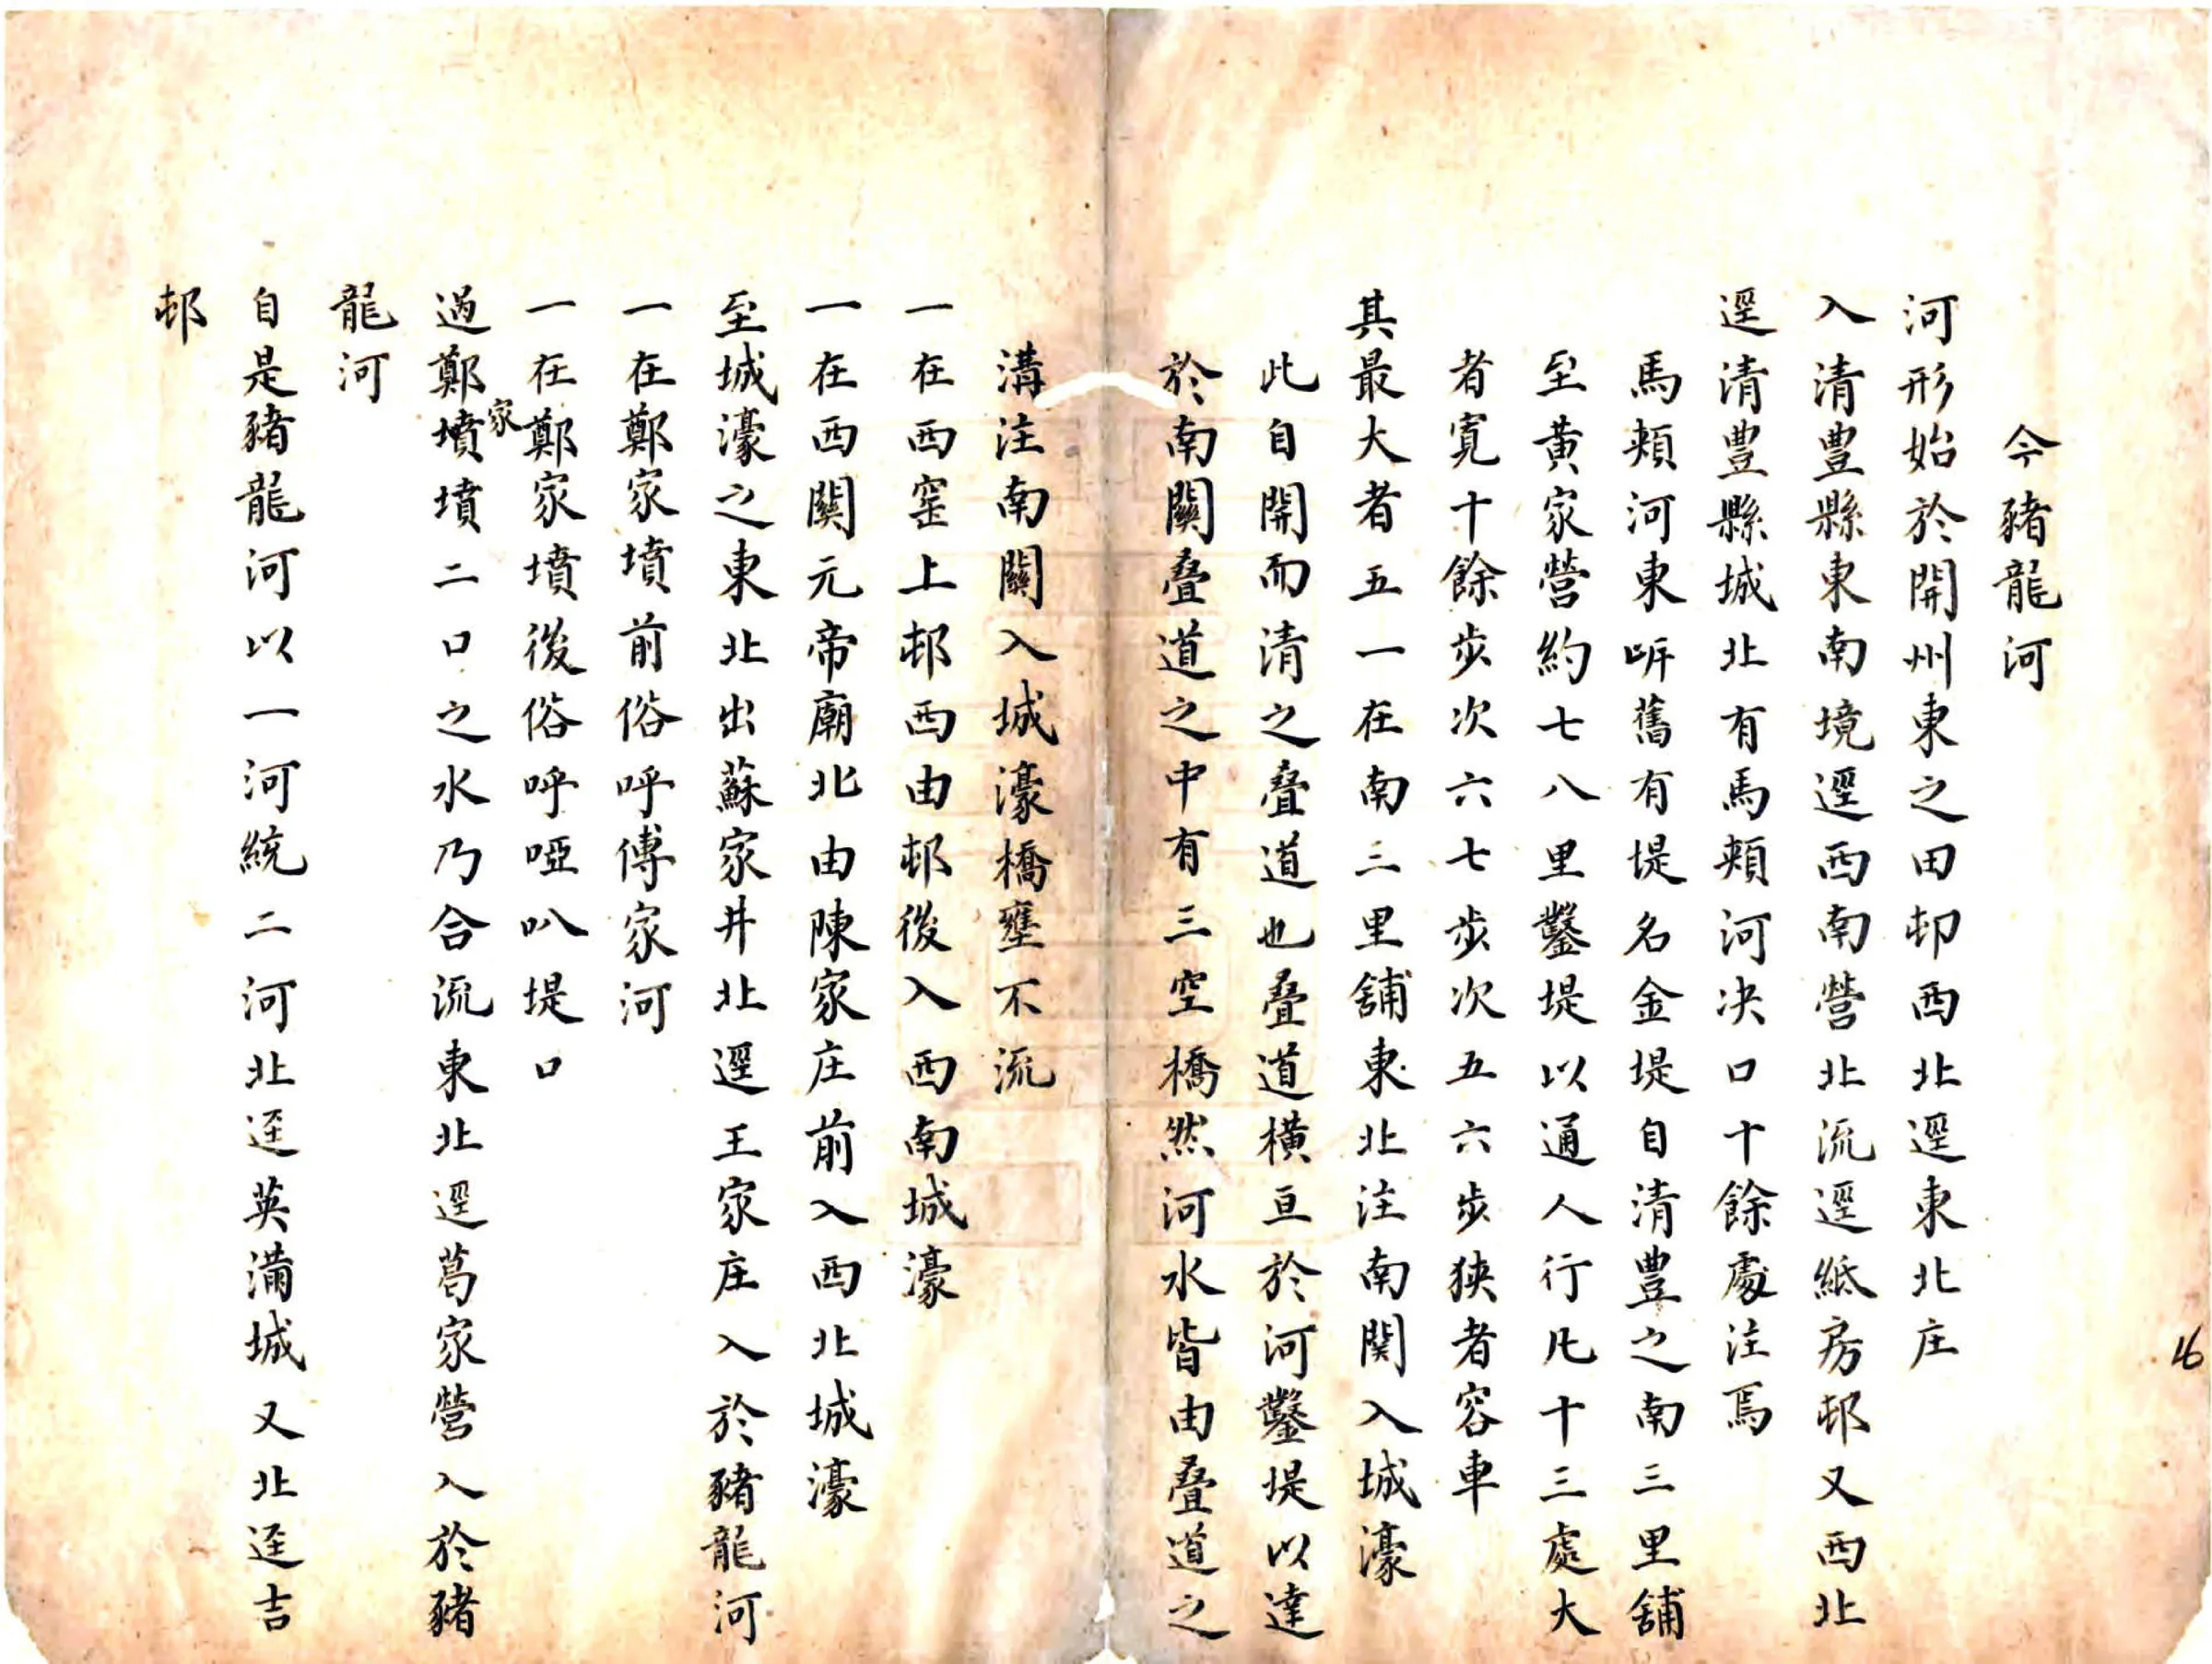 今豬龍河
河形始於開州東之田邨西北逕東北庄
入清豊縣東南境逕西南營北流逕紙房邨又西北
逕清豊縣城北有馬頰河決口十餘處注焉
馬頰河東岍舊有堤名金堤自清豊之南三里舖
至黃家營約七八里鑿堤以通人行凡十三處大
者寛十餘步次六七步次五六步狹者容車
其最大者五一在南三里舖東北注南関入城濠
此自開而清之疊道也疊道橫亘於河鑿堤以達
於南關疊道之中有三空橋然河水皆由疊道之
溝注南關入城濠橋壅不流
一在西窑上邨西由邨後入西南城濠
一在西關元帝廟北由陳家庄前入西北城濠
至城濠之東北出蘇家井北逕王家庄入於豬龍河
一在鄭家墳前俗呼傅家河
一在鄭家墳後俗呼啞叭堤口
過鄭家墳墳二口之水乃合流東北逕葛家營入於豬
龍河
自是豬龍河以一河統二河北逕英満城又北逕吉
邨
16